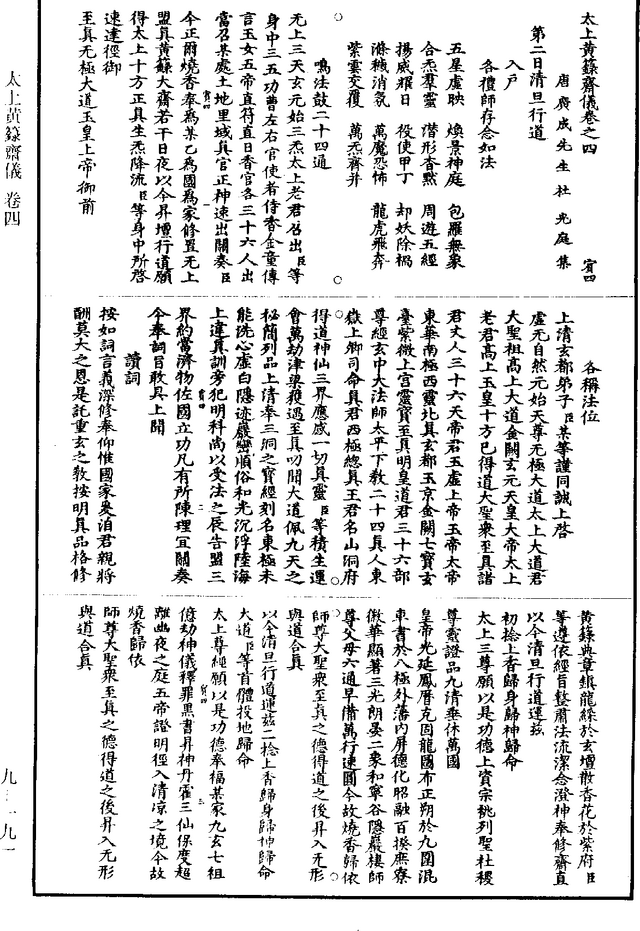 太上黃籙齋儀卷之四
唐廣成先生杜光庭集
賓四
第二日清旦行道
入戶
各禮師存念如法
五星虛映　煥景神庭　包羅無象
合炁羣靈　潛形杳黙　周遊五經
揚威耀日　役使甲丁　却妖除禍
滌穢消氛　萬魔恐怖　龍虎飛奔
紫雲交覆　萬炁齊并
鳴法鼓二十四通
无上三天玄元始三炁太上老君召出臣等
身中三五功曹左右官使者侍香金童傳
言玉女五帝直符直日香官各三十六人出
當召某處土地里域真官正神速出關奏臣
今正爾燒香奉為某乙為國為家修置无上
盟真黃籙大齋若干日夜以今昇壇行道願
得太上十方正真生炁降流臣等身中所啓
速達徑御
至真无極大道玉皇上帝御前
各稱法位
上清玄都弟子臣某等謹同誠上啓
虛无自然元始天尊无極大道太上大道君
大聖祖高上大道金闕玄元天皇大帝太上
老君高上玉皇十方已得道大聖衆至真諸
君丈人三十六天帝君玉虛上帝玉帝太帝
東華南極西靈北真玄都玉京金闕七寶玄
臺紫微上宮靈寶至真明皇道君三十六部
尊經玄中大法師太平下教二十四真人東
嶽上卿司命真君西極總真王君名山洞府
得道神仙三界應感一切真靈臣等積生運
會萬劫津梁獲遇至真叨聞大道佩九天之
秘簡列品上清奉三洞之寶經刻名東極未
能洗心虛白隱迹巖巒順俗和光沉浮陸海
上違真訓旁犯明科尚以受法之辰告盟三
界約當濟物佐國立功凡有所陳理宜關奏
今奉詞旨敢具上聞
讀詞
按如詞言義深修奉仰惟國家爰洎君親將
酬莫大之恩是託重玄之教按明真品格修
黃籙典章銀龍綵於玄壇散香花於紫府臣
等遵依經旨整肅法流潔念澄神奉修齋直
以今清旦行道運茲
初捻上香歸身歸神歸命
太上三尊願以是功德上資宗祧列聖社稷
尊靈證品九清垂休萬國
皇帝光延鳳曆克固龍圖布正朔於九圍混
車書於八極外藩內屏德化昭融百揆庶寮
徽華顯著三光朗晏二象和寧谷隱巖棲師
尊父母六通早備萬行速圓今故燒香歸依
師尊大聖衆至真之德得道之後昇入无形
與道合真
以今清旦行道運茲二捻上香歸身歸神歸命
大道臣等首體投地歸命
太上尊經願以是功德奉福某家九玄七祖
億劫神儀釋罪黑書昇神丹霍三仙保度超
離幽夜之庭五帝證明徑入清涼之境今故
燒香歸依
師尊大聖衆至真之德得道之後昇入无形
與道合真
太上黃籙齋儀　卷四